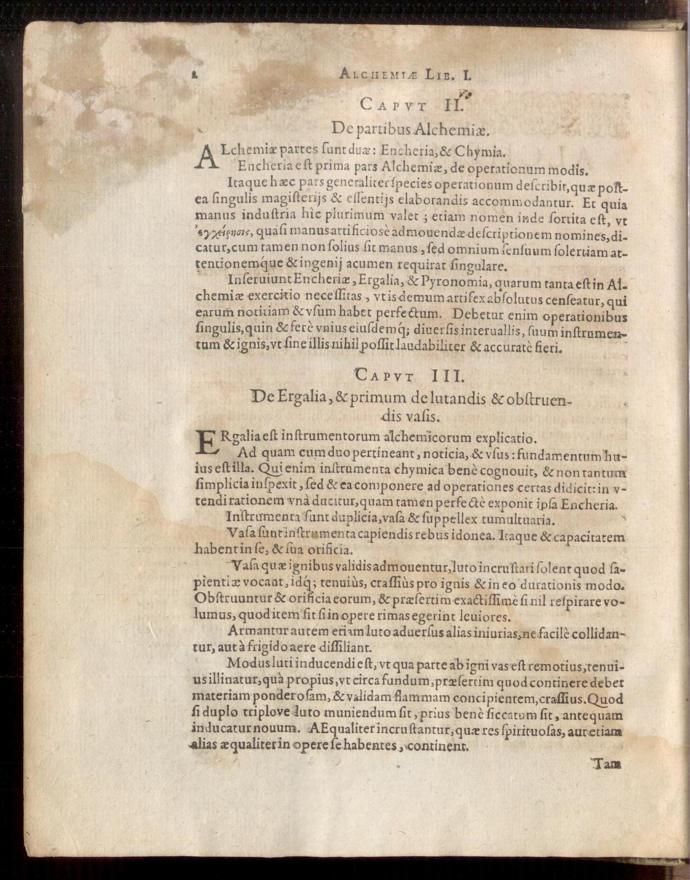 2 ALCHEMIÆ LIB. I.
CAPVT II.
De partibus Alchemiæ.
ALchemiæ partes ſunt duæ: Encheria, & Chymia.
Encheria eſt prima pars Alchemiæ, de operationum modis.
Itaque hæc pars generaliter ſpecies operationum deſcribit, quæ poſt-
ea ſingulis magiſterijs & eſſentijs elaborandis accommodantur. Et quia
manus induſtria hîc plurimum valet; etiam nomen inde ſortita eſt, vt
ἐγχείρησις, quaſi manus artificioſè admouendæ deſcriptionem nomines, di-
catur, cum tamen non ſolius ſit manus, ſed omnium ſenſuum ſolertiam at-
tentionemque & ingenij acumen requirat ſingulare.
Inſeruiunt Encheriæ, Ergalia, & Pyronomia, quarum tanta eſt in Al-
chemiæ exercitio neceſſitas, vt is demum artifex abſolutus cenſeatur, qui
earum notitiam & vſum habet perfectum. Debetur enim operationibus
ſingulis, quin & ferè vnius eiuſdemq; diuerſis interuallis, ſuum inſtrumen-
tum & ignis, vt ſine illis nihil poſſit laudabiliter & accuratè fieri.
CAPVT III.
De Ergalia, & primum de lutandis & obſtruen-
dis vaſis.
ERgalia eſt inſtrumentorum alchemicorum explicatio.
Ad quam cum duo pertineant, noticia, & vſus: fundamentum hu-
ius eſt illa. Qui enim inſtrumenta chymica benè cognouit, & non tantum
ſimplicia inſpexit, ſed & ea componere ad operationes certas didicit: in v-
tendi rationem vnà ducitur, quam tamen perfectè exponit ipſa Encheria.
Inſtrumenta ſunt duplicia, vaſa & ſuppellex tumultuaria.
Vaſa ſunt inſtrumenta capiendis rebus idonea. Itaque & capacitatem
habent in ſe, & ſua orificia.
Vaſa quæ ignibus validis admouentur, luto incruſtari ſolent quod ſa-
pientiæ vocant, idq; tenuiùs, craſſiùs pro ignis & in eo durationis modo.
Obſtruuntur & orificia eorum, & præſertim exactiſſimè ſi nil reſpirare vo-
lumus, quod item fit ſi in opere rimas egerint leuiores.
Armantur autem etiam luto aduerſus alias iniurias, ne facilè collidan-
tur, aut à frigido aere diſſiliant.
Modus luti inducendi eſt, vt qua parte ab igni vas eſt remotius, tenui-
us illinatur, quà propius, vt circa fundum, præſertim quod continere debet
materiam ponderoſam, & validam flammam concipientem, craſſius. Quod
ſi duplo triplove luto muniendum ſit, prius benè ſiccatum ſit, antequam
inducatur nouum. AEqualiter incruſtantur, quæ res ſpirituoſas, aut etiam
alias æqualiter in opere ſe habentes, continent.
Tam